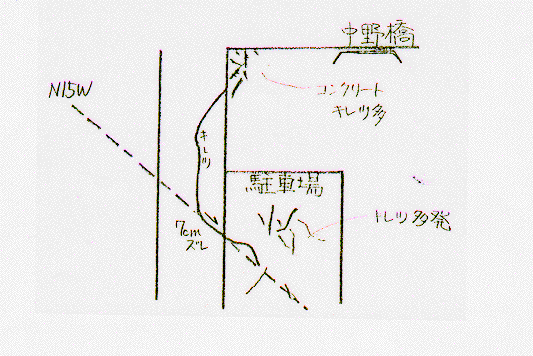 中野橋
N15W
コンクリート
キレツ多
キレツ
駐車場
キレツ多発
7cm
ズレ